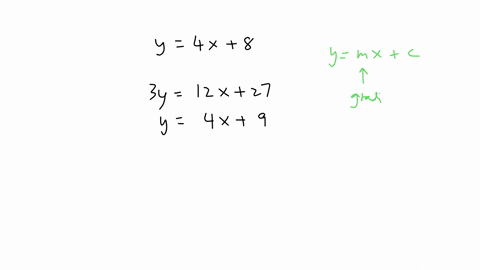 y = 4x + 8
3y = 12x + 27
y = 4x + 9
y = mx + c